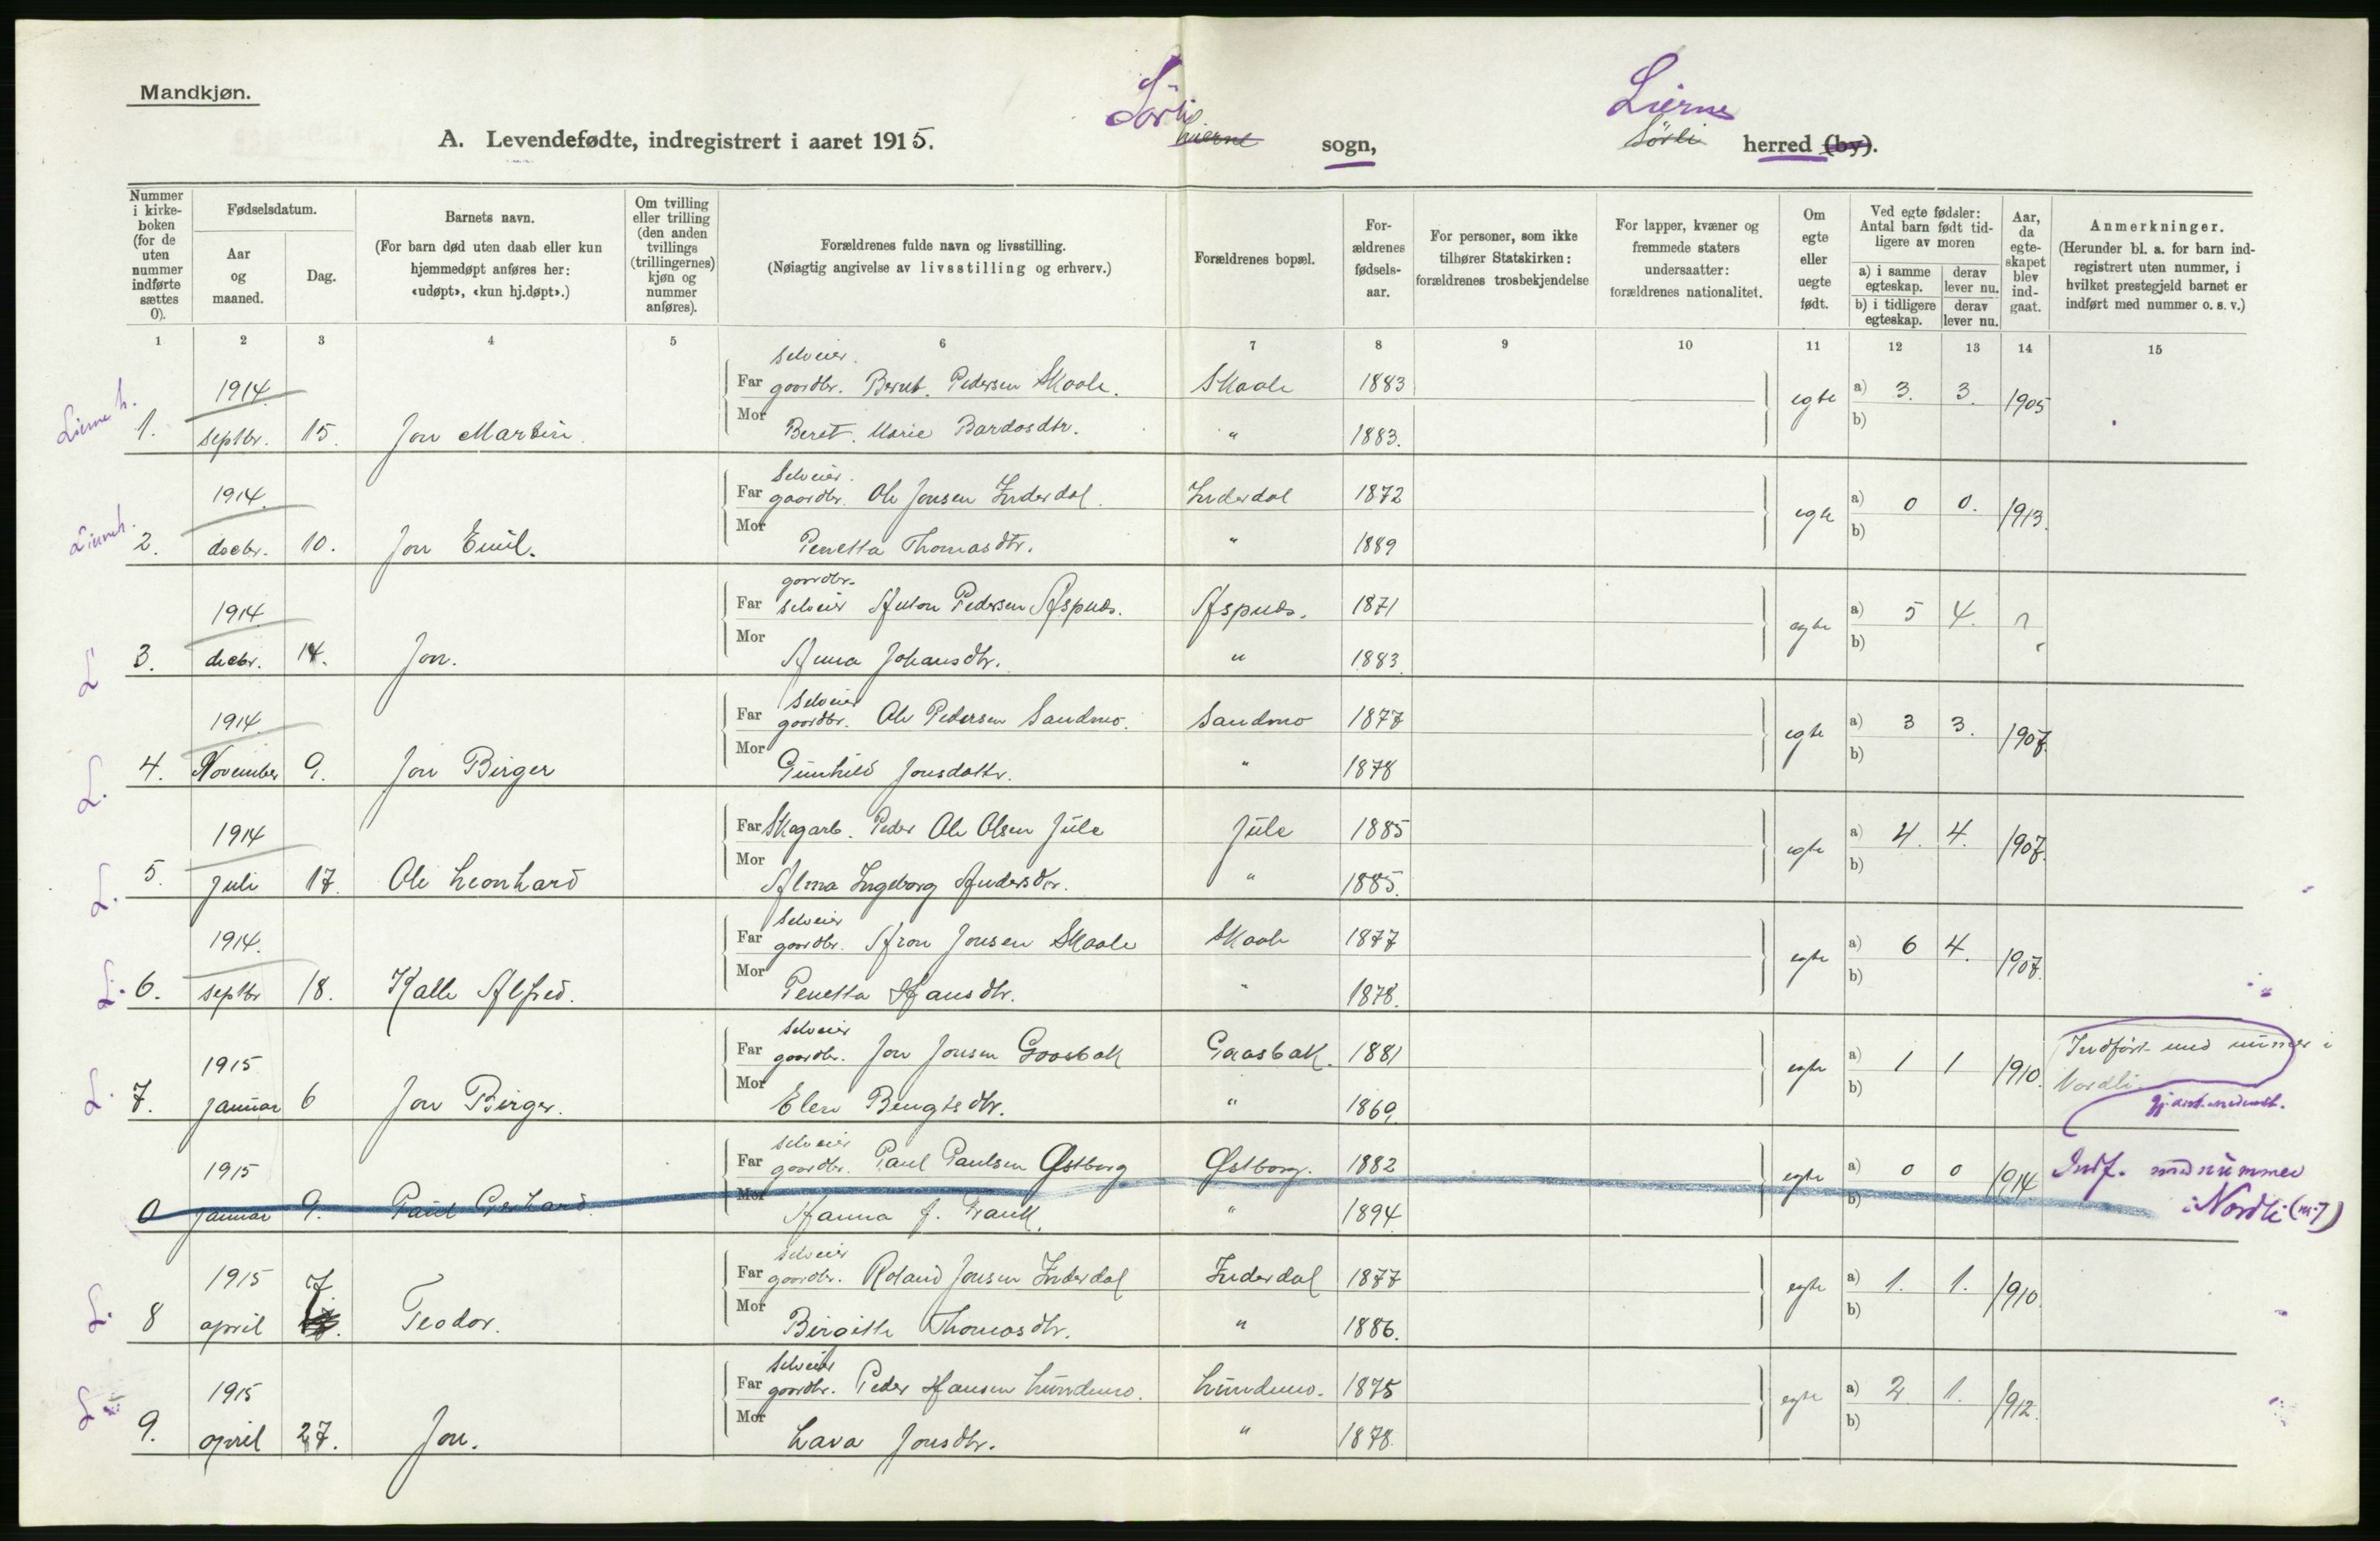 Mandkjøn.
A. Levendefødte, indregistrert i aaret 1915.
Sörli Lierne sogn,
Lierne Sörli herred (by).
Nummer i kirkeboken (for de uten nummer indførte sættes 0).
Fødselsdatum.
Aar og maaned.
Dag.
Barnets navn.
(For barn død uten daab eller kun hjemmedøpt anføres her: «udøpt», «kun hj.døpt».)
Om tvilling eller trilling (den anden tvillings (trillingernes) kjøn og nummer anføres).
Forældrenes fulde navn og livsstilling.
(Nøiagtig angivelse av livsstilling og erhverv.)
Forældrenes bopæl.
Forældrenes fødselsaar.
For personer, som ikke tilhører Statskirken: forældrenes trosbekjendelse
For lapper, kvæner og fremmede staters undersaatter: forældrenes nationalitet.
Om egte eller uegte født.
Ved egte fødsler: Antal barn født tidligere av moren
a) i samme egteskap.
derav lever nu.
b) i tidligere egteskap.
derav lever nu.
Aar, da egteskapet blev indgaat.
Anmerkninger.
(Herunder bl. a. for barn indregistrert uten nummer, i hvilket prestegjeld barnet er indført med nummer o. s. v.)
1 2 3 4 5 6 7 8 9 10 11 12 13 14 15
selveier.
1914 Far gaardbr. Bernt. Pedersen Skaale. Skaale 1883
Lierne h. 1. septbr. 15. Jon Martin. Mor Beret. Marie Bardosdtr. " 1883. egte a) 3. 3. b) 1905
Selveier.
1914. Far gaardbr. Ole Jonsen Inderdal. Inderdal 1872
Lierne h. 2. decbr. 10. Jon Emil. Mor Penetta Thomasdtr. " 1889 egte a) 0 0. b) 1913.
gaardbr.
1914 Far selveier Anton Pedersen Aspnes. Aspnes. 1871
L 3. decbr. 14. Jon. Mor Anna Johansdtr. " 1883 egte a) 5 4. b) ?
Selveier
1914. Far gaardbr. Ole Pedersen Sandmo. Sandmo 1877
L. 4. November 9. Jon Birger Mor Gunhild Jonsdattr. " 1878 egte a) 3 3. b) 1907.
1914 Far Skogarb. Peder Ole Olsen Jule Jule 1885
L. 5. Juli 17. Ole Leonhard Mor Alma Ingeborg Andersdtr. " 1885. egte a) 4. 4. b) 1907.
Selveier
1914. Far gaardbr. Aron Jonsen Skaale Skaale 1877
L. 6. septbr 18. Kalle Alfred. Mor Penetta Hansdtr. " 1878. egte a) 6 4. b) 1907.
Selveier
1915 Far gaardbr. Jon Jonsen Gaasbak Gaasbak. 1881
L. 7. Januar 6 Jon Birger. Mor Elen Bengtsdtr. " 1869. egte a) 1 1 b) 1910. Indført med nummer i Nordli
selveier
1915 Far gaardbr. Paul Paulsen Østborg Østborg. 1882
0 januar 9. Paul Gerhard. Mor Hanna J. Frank. " 1894. egte a) 0 0 b) 1914 Indf. med nummer i Nordli (nr 7)
selveier
1915 7. Far gaardbr. Roland Jonsen Inderdal Inderdal 1877
L. 8 april Teodor. Mor Birgitte Thomasdtr. " 1886. egte a) 1. 1. b) 1910.
Selveier
1915 Far gaardbr. Peder Hansen Lundmo. Lundmo. 1875
L 9. april 27. Jon. Mor Lava Jonsdtr. " 1878. egte a) 2 1. b) 1912.